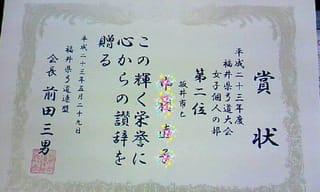 賞状
平成二十三年度
福井県弓道大会
女子個人の部
第二位
坂井市
この輝く栄誉に
心からの讃辞を
贈る
平成二十三年五月二十九日
福井県弓道連盟
会長 前田三男